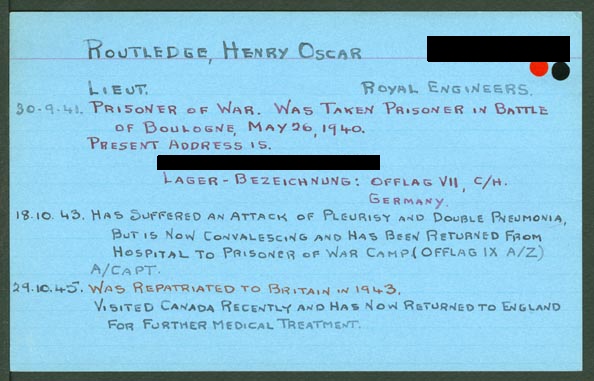 ROUTLEDGE, HENRY OSCAR
LIEUT. ROYAL ENGINEERS.
30-9-41. PRISONER OF WAR. WAS TAKEN PRISONER IN BATTLE
OF BOULOGNE, MAY 26, 1940.
PRESENT ADDRESS IS.
LAGER-BEZEICHNUNG: OFFLAG VII, C/H.
GERMANY.
18.10.43. HAS SUFFERED AN ATTACK OF PLEURISY AND DOUBLE PNEUMONIA,
BUT IS NOW CONVALESCING AND HAS BEEN RETURNED FROM
HOSPITAL TO PRISONER OF WAR CAMP (OFFLAG IX A/Z)
A/CAPT.
29.10.45. WAS REPATRIATED TO BRITAIN IN 1943.
VISITED CANADA RECENTLY AND HAS NOW RETURNED TO ENGLAND
FOR FURTHER MEDICAL TREATMENT.